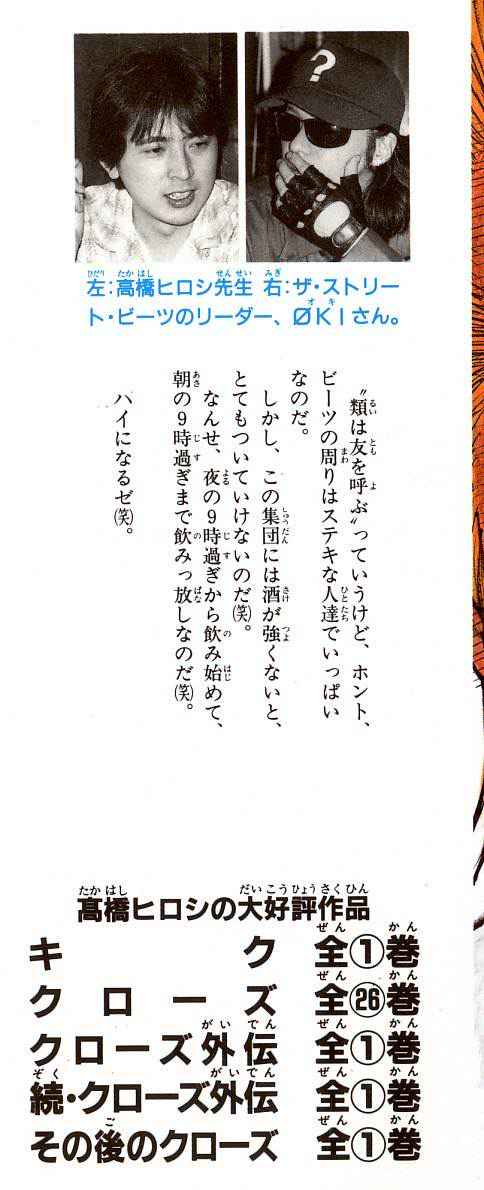 ?
左：高橋ヒロシ先生 右：ザ・ストリー
ト・ビーツのリーダー、ØKIさん。
〝類は友を呼ぶ〟っていうけど、ホント、
ビーツの周りはステキな人達でいっぱい
なのだ。
しかし、この集団には酒が強くないと、
とてもついていけないのだ㈸。
なんせ、夜の9時過ぎから飲み始めて、
朝の9時過ぎまで飲みっ放しなのだ(笑)。
ハイになるゼ(笑)。
髙橋ヒロシの大好評作品
キク 全①巻
クローズ 全㉖巻
クローズ外伝 全①巻
続・クローズ外伝 全①巻
その後のクローズ 全①巻